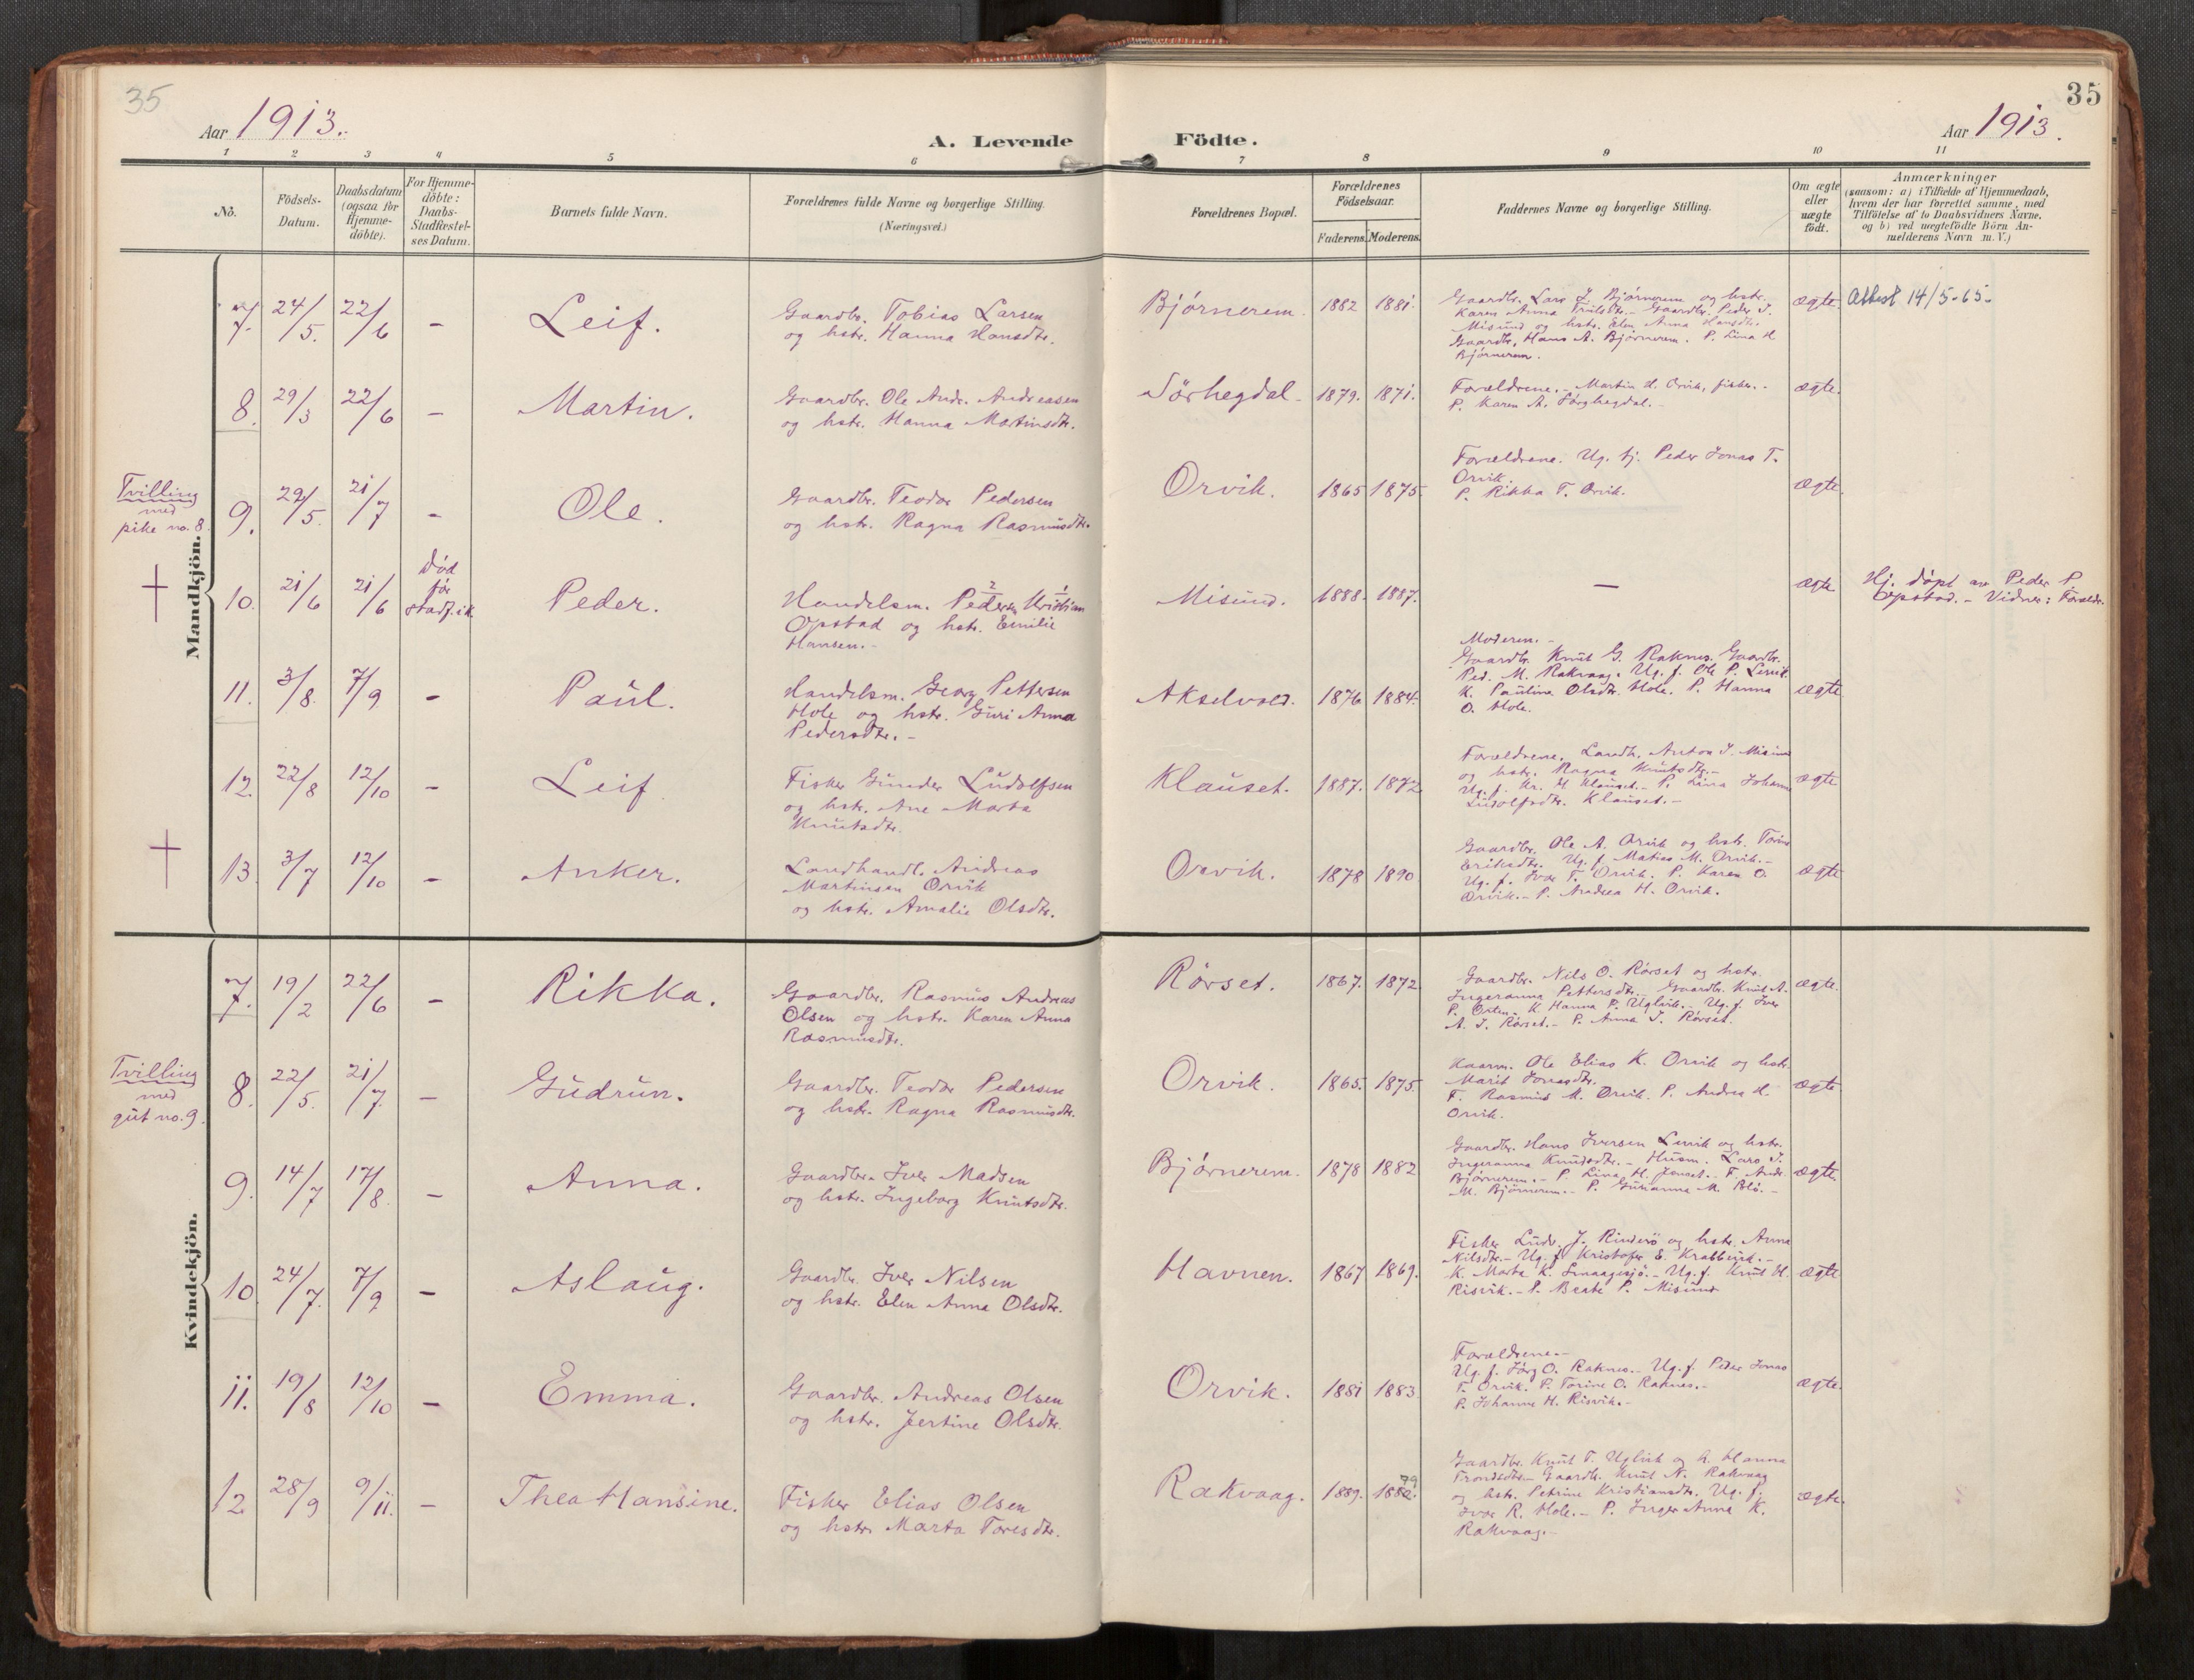 35
Aar 1913.
A. Levende
1 2 3 4 5 6
No.
Födsels-
Datum.
Daabsdatum
(ogsaa for
Hjemme-
döbte).
For Hjemme-
döbte:
Daabs-
Stadfæstel-
ses Datum.
Barnets fulde Navn.
Forældrenes fulde Navne og borgerlige Stilling.
(Næringsvei.)
Mandkjön.
7. 24/5. 22/6 - Leif. Gaardbr. Tobias Larsen
og hstr. Hanna Hansdtr.
8. 29/3 22/6 - Martin. Gaardbr. Ole Andr. Andreasen
og hstr. Hanna Martinsdtr.
Tvilling
med
pike no. 8.
9. 22/5. 21/7 - Ole. Gaardbr. Teodor Pedersen
og hstr. Ragna Rasmusdtr.
10. 21/6 21/6 Død
før
stadf. ik
Peder. Handelsm. Peder Kristian
Opstad og hstr. Emilie
Hansen.-
11. 3/8. 7/9 - Paul. Handelsm. Georg Pettersen
Hole og hstr. Guri Anna
Pedersdtr.-
12. 22/8 12/10 - Leif Fisker Gunder Ludolfsen
og hstr. Ane Marta
Knutsdtr.
13. 3/7 12/10 - Anker. Landhandl. Andreas
Martinsen Orvik
og hstr. Amalie Olsdtr.
Kvindekjön.
7. 19/2 22/6 - Rikka. Gaardbr. Rasmus Andreas
Olsen og hstr. Karen Anna
Rasmusdtr.
Tvilling
med
gut no. 9.
8. 22/5. 21/7. - Gudrun. Gaardbr. Teodor Pedersen
og hstr. Ragna Rasmusdtr.
9. 14/7 17/8. - Anna. Gaardbr. Iver Madsen
og hstr. Ingeborg Knutsdtr.
10. 24/7. 7/9 - Aslaug. Gaardbr. Iver Nilsen
og hstr. Elen Anna Olsdtr.
11. 19/8 12/10 - Emma. Gaardbr. Andreas Olsen
og hstr. Jertine Olsdtr.
12. 28/9 9/11. - Thea Hansine. Fisker Elias Olsen
og hstr. Marta Toresdtr.
35
Födte.
Aar 1913.
7 8 9 10 11
Forældrenes Bopæl.
Forældrenes
Födselsaar.
Faderens. Moderens.
Faddernes Navne og borgerlige Stilling.
Om ægte
eller
uægte
födt.
Anmærkninger
(saasom: a) i Tilfælde af Hjemmedaab,
hvem der har forrettet samme, med
Tilföielse af to Daabsvidners Navne,
og b) ved uægtefödte Börn An-
melderens Navn m. V.)
Bjørnerem. 1882 1881. Gaardbr. Lars J. Bjørnerem og hstr.
Karen Anna Trulsdtr.- Gaardbr. Peder J.
Misund og hstr. Elen Anna Hansdtr.
Gaardbr. Hans A. Bjørnerem. P. Lina H.
Bjørnerem.
ægte. Attest 14/5-65-
Sørhegdal. 1879. 1871. Forældrene.- Martin H. Orvik, fisker.-
P. Karen A. Sørhegdal.-
ægte.
Orvik. 1865 1875. Forældrene. Ug. tj. Peder Jonas T.
Orvik.
P. Rikka T. Orvik.
ægte.
Misund. 1888. 1887. - ægte Hj. døpt av Peder P.
Opstad.- Vidner: Foreldr.
Akselvold. 1876 1884. Moderen.-
Gaardbr. Knut G. Raknes. Gaardbr.
Ped. M. Rakvaag. Ug. f. Ole P. Lervik.
K. Pauline Olsdtr. Hole. P. Hanna
O. Hole.
ægte
Klauset. 1887. 1872 Forældrene. Landh. Anton J. Misund
og hstr. Ragna Knutsdtr.-
Ug. f. Kr. H Klauset.- P. Lina Johanna
Ludolfsdtr. Klauset.-
ægte
Orvik. 1878 1890 Gaardbr. Ole A. Orvik og hstr. Torine
Eriksdtr. Ug. f. Matias M. Orvik.-
Ug. f. Ivar T. Orvik. P. Karen O.
Orvik.- P. Andrea H. Orvik.
ægte
Rørset. 1867. 1872 Gaardbr. Nils O. Rørset og hstr.
Ingeranna Pettersdtr.- Gaardbr. Knut A.
P. Orten. K Hanna P. Uglvik.- Ug. f. Iver
A. J. Rørset.- P. Anna J. Rørset.
ægte.
Orvik. 1865. 1875. Kaarm. Ole Elias K. Orvik og hstr.
Marit Jonasdtr.
F. Rasmus M. Orvik. P. Andrea H.
Orvik.
ægte.
Bjørnerem. 1878 1882 Gaardbr. Hans Iversen Lervik og hstr.
Ingeranna Knudsdtr.- Husm. Lars J.
Bjørnerem.- P. Lina H. Jenset.- F. Andr.
M. Bjørnerem.- P. Gurianna M. Blø.-
ægte.
Havnen. 1867 1869. Fisker Ludv. J. Rinderø og hstr. Anna
Nilsdtr.- Ug. f Kristofer E. Krabbevik.-
K. Marta K. Smaagesjø.- Ug. f. Knut H.
Risvik.- P. Beate P. Misund
ægte
Orvik. 1881 1883. Forældrene.-
Ug. f. Jørg O. Raknes.- Ug. f. Peder Jonas
T. Orvik. P. Torine O. Raknes.-
P. Johanne H. Risvik.-
ægte.
Rakvaag. 1889. 1882. 79 Gaardbr. Knut T. Uglvik og h. Hanna
Trondsdtr.- Gaardbr. Knut N. Rakvaag
og hstr. Petrine Kristiansdtr. Ug. f.
Ivar R. Hole.- P. Inger Anna K.
Rakvaag.-
ægte.